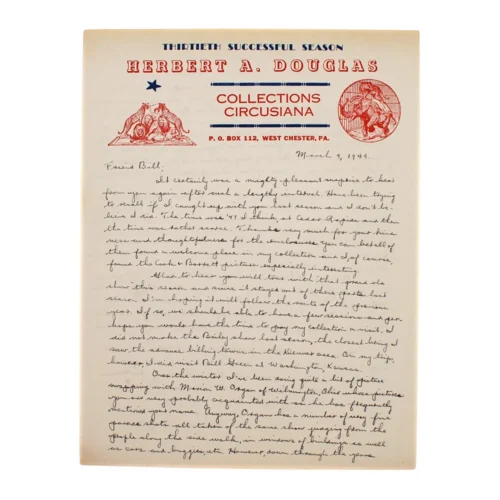 THIRTIETH SUCCESSFUL SEASON
HERBERT A. DOUGLAS
COLLECTIONS
CIRCUSIANA
P. O. BOX 112, WEST CHESTER, PA.
March 9, 1949.
Friend Bill:
It certainly was a mighty pleasant surprise to hear
from you again after such a lengthy interval. Have been trying
to recall if I caught up with you last season and I don't be-
lieve I did. The time was '47 I think, at Cedar Rapids and then
the time was rather scarce. Thanks very much for your kind-
ness and thoughtfulness for the enclosures you can bet all of
them found a welcome place in my collection and I, of course,
found the Cook & Barrett pictures especially interesting.
Glad to hear you will tour with that grand ole
show this season and sure it stays out of these parts last
season. I'm hoping it will follow the route of the previous
year. If so, we should be able to have a few sessions and per-
haps you would have the time to pay my collection a visit. I
did not make the Bailey show last season, the closest being I
saw the advance billing towns in the area. On my trip,
however, I did visit Bill Green at Washington, Kansas.
Over the winter I've been doing quite a bit of picture
swapping with Marion W. Organ of Wilmington, Ohio whose pictures
you are very probably acquainted with as he has frequently
mentioned your name. Anyway, Organ has a number of very fine
parade shots all taken of the same show judging from the
people along the side walk, in windows of buildings as well
as cars and buggies, etc. However, down through the years